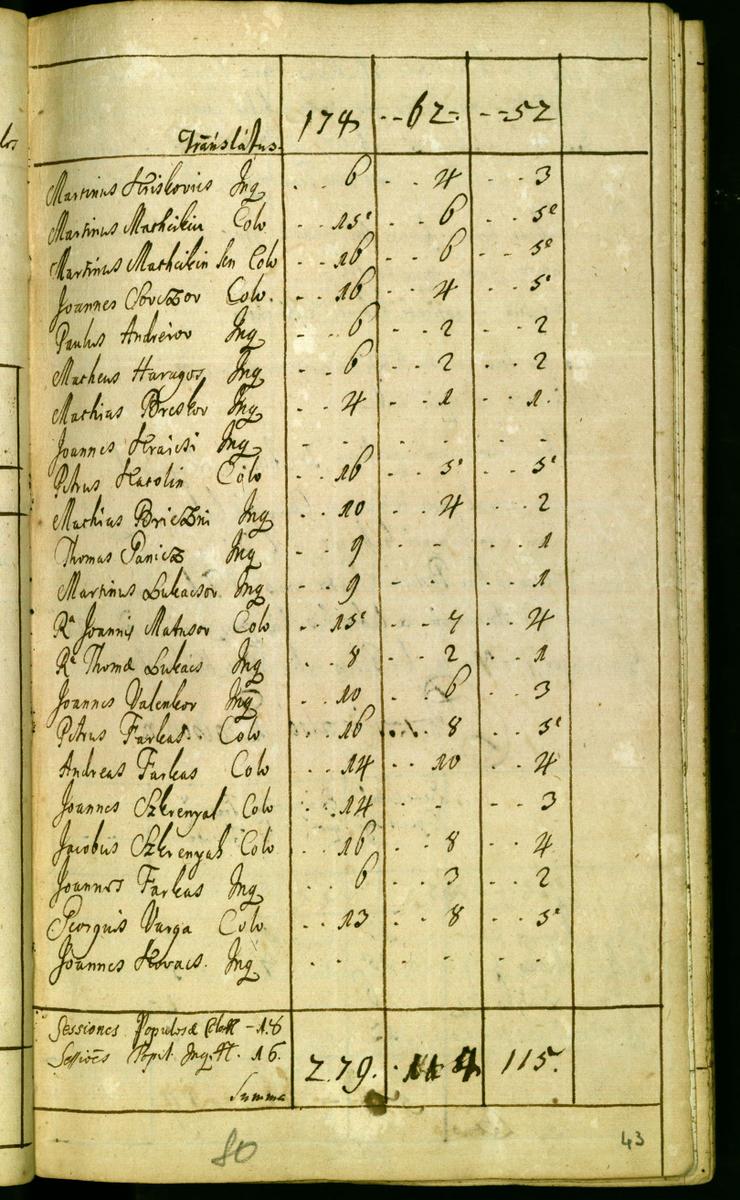 Translatus. 174 -- 62 -- 52
Martinus Hriskovics Inq . . 6 - . 4 - . . 3
Martinus Machikin Colo . . 15 - . . 6 - . . 5
Martinus Machikin Sen Colo . . 16 - . . 6 - . . 5
Joannes Colo. . . 16 - . . 4 - . . 5
Paulus Andreiov Inq . - 6 - . . 2 - . . 2
Matheus Haragos Inq - . 6 - . . 2 - . . 2
Mathias Breskov Inq - . 4 - . . 1 - . . 1.
Joannes Hraicsi Inq - - - - - -
Petrus Harolin Colo . . 16 - . . 5 - . . 5
Mathias Briczni Inq . . 10 - . . 4 - . . 2
Thomas Panicz Inq - . 9 - - - . . 1
Martinus Lukacsov Inq - . 9 - . . - . . 1
Ra Joannis Matusov Colo . . 15 - . . 7 - . . 4
Ra Thomæ Lukacs Inq . . 8 - . . 2 - . . 1
Joannes Valenkov Inq . . 10 . . 6 - . . 3
Petrus Farkas. Colo . . 16 . . . 8 - . . 5
Andreas Farkas Colo . . 14 . . 10 - . . 4
Joannes Szkrenyal Colo . . 14 - - - . . 3
Jacobus Szkrenyak Colo . . 16 - . . 8 - . . 4
Joannes Farkas Inq . . 6 - . . 3 - . . 2
Georgius Varga Colo . . 13 - . . 8 - . . 5
Joannes Kovacs. Inq . . . . . .
Sessiones Populosæ - 18
Sessiões Inq. 16.
Summa 279. 114 115.
80
43